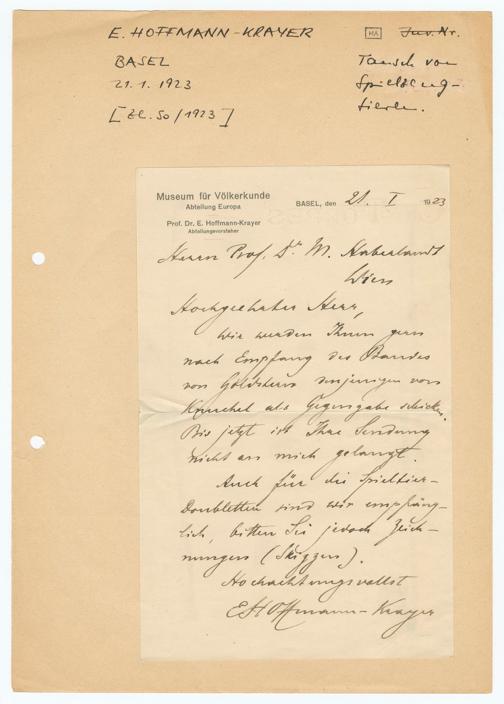 E. HOFFMANN-KRAYER
HA Inv. Nr.
BASEL
21.1.1923
[Zl. 50/1923]
Tausch von
Spielzeug-
tieren.
Museum für Völkerkunde
Abteilung Europa
Prof. Dr. E. Hoffmann-Krayer
Abteilungsvorsteher
BASEL, den 21. I 1923
Herrn Prof. Dr M. Haberlandt
Wien
Hochgeehrter Herr,
Wir werden Ihnen gern
nach Empfang des Bandes
von Goldstern denjenigen von
Knuchel als Gegengabe schicken.
Bis jetzt ist Ihre Sendung
nicht an mich gelangt.
Auch für die Spieltier-
Doubletten sind wir empfäng-
lich, bitten Sie jedoch Zeich-
nungen (Skizzen).
Hochachtungsvollst
EHoffmann-Krayer